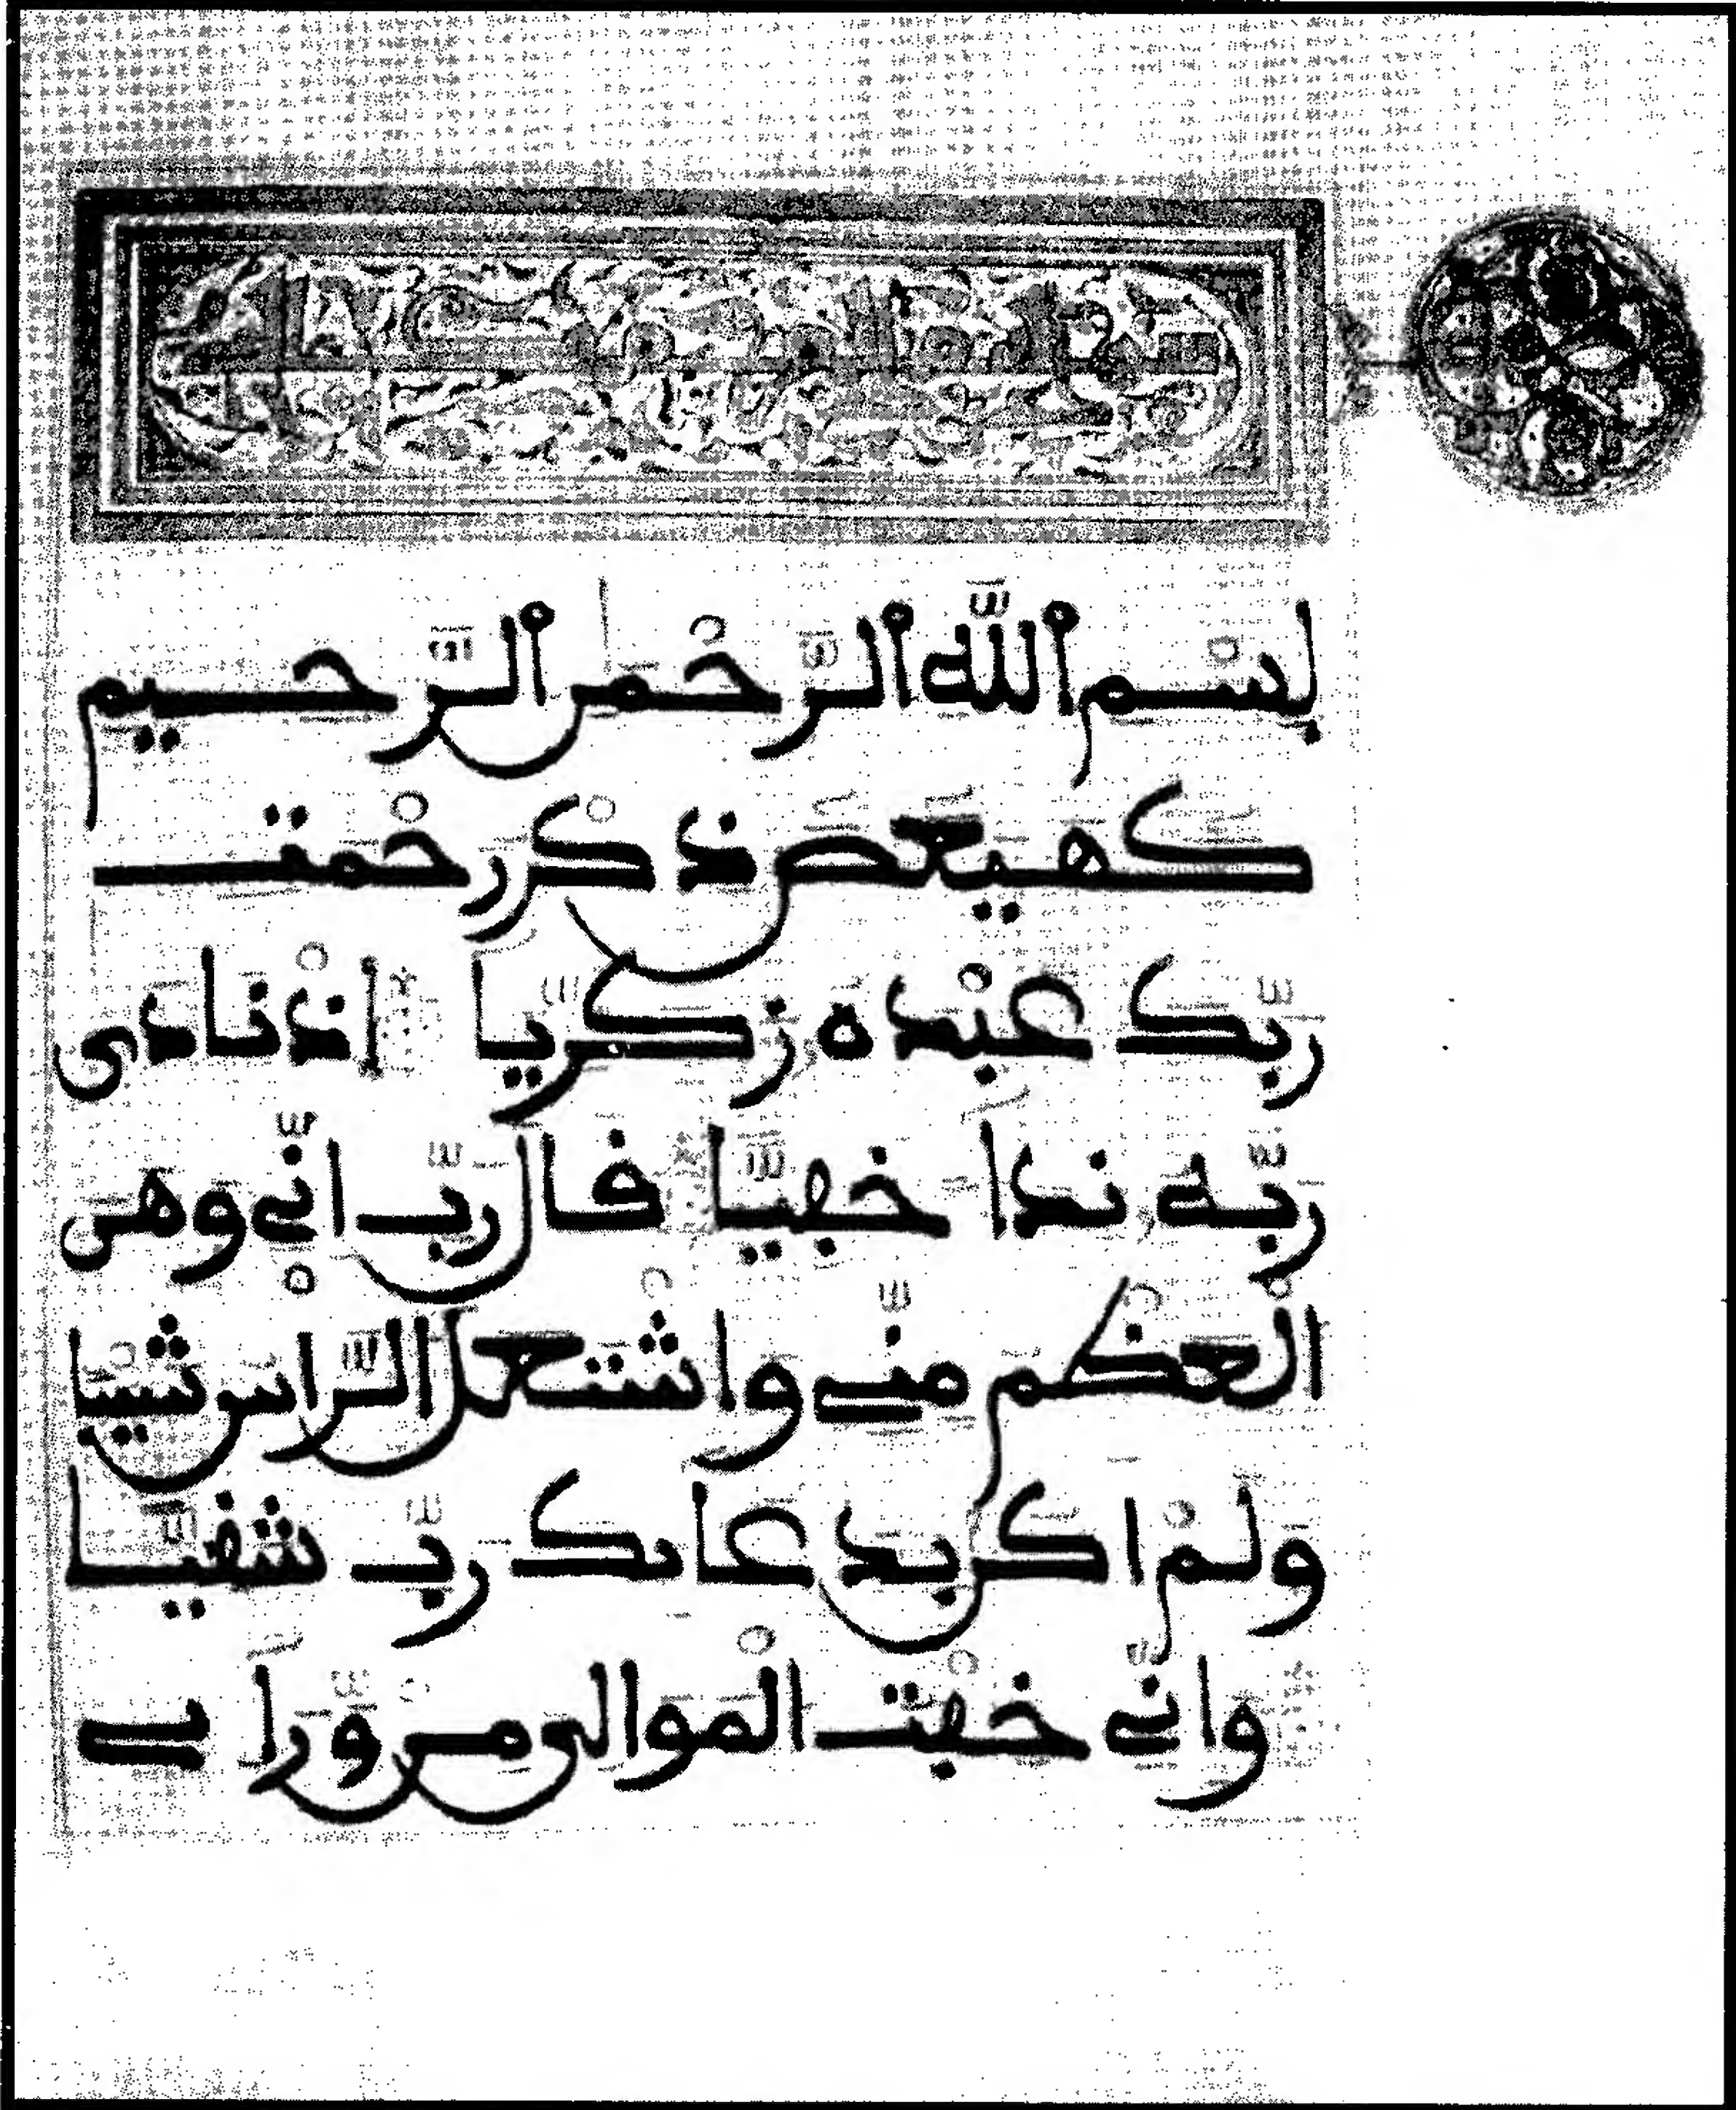 بسم الله الرحمن الرحيم
كهيعص ذكر رحمت
ربك عبده زكريا اذ نادى
ربه ندا خفيا قال رب انى وهن
العظم منى واشتعل الراس شيبا
ولم اكن بدعاىك رب شقيا
وانى خفت الموالى من ورا ى